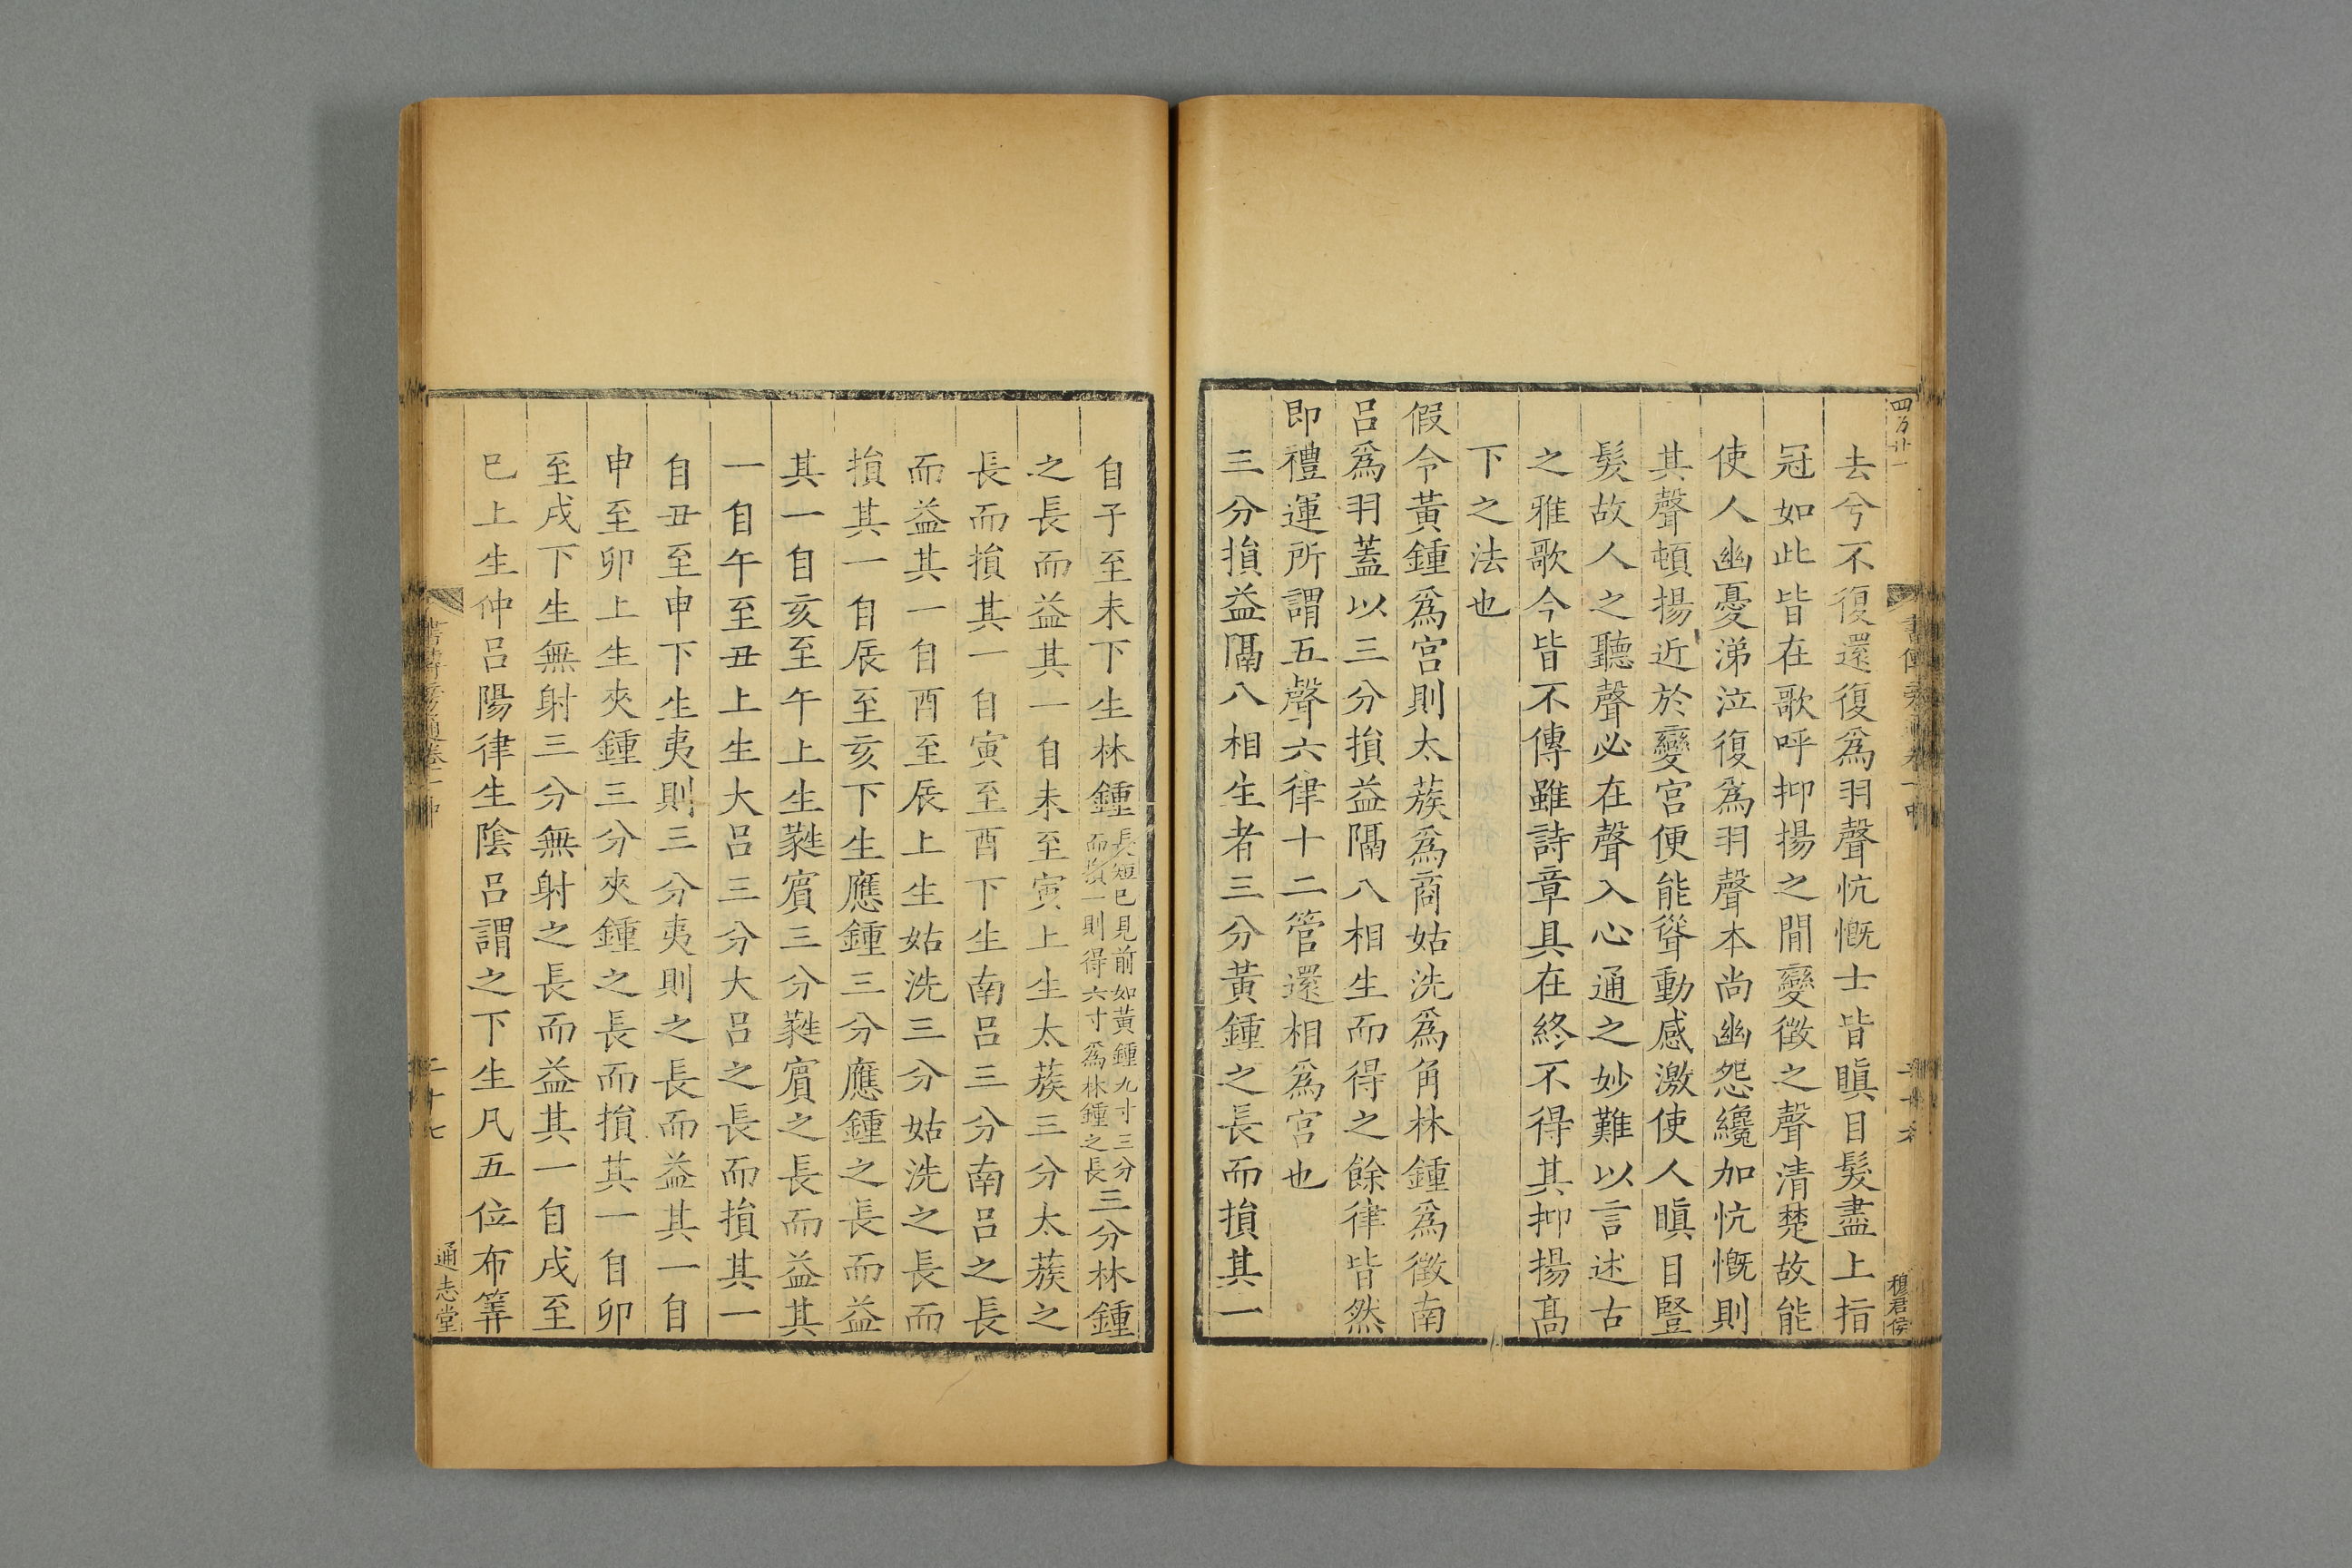 去兮不復還復爲羽聲忼慨士皆瞋目髮盡上指
冠如此皆在歌呼抑揚之閒變徵之聲清楚故能
使人幽憂涕泣復爲羽聲本尚幽怨纔加忼慨則
其聲頓揚近於變宮便能聳動感激使人瞋目豎
髮故人之聽聲必在聲入心通之妙難以言述古
之雅歌今皆不傳雖詩章具在終不得其抑揚高
下之法也
假令黃鍾爲宮則太蔟爲商姑洗爲角林鍾爲徵南
呂爲羽蓋以三分損益隔八相生而得之餘律皆然
即禮運所謂五聲六律十二管還相爲宮也
三分損益隔八相生者三分黃鍾之長而損其一
穆君侯
自子至未下生林鍾長短已見前如黃鍾九寸三分而損一則得六寸爲林鍾之長三分林鍾
之長而益其一自未至寅上生太蔟三分太蔟之
長而損其一自寅至酉下生南呂三分南呂之長
而益其一自酉至辰上生姑洗三分姑洗之長而
損其一自辰至亥下生應鍾三分應鍾之長而益
其一自亥至午上生蕤賓三分蕤賓之長而益其
一自午至丑上生大呂三分大呂之長而損其一
自丑至申下生夷則三分夷則之長而益其一自
申至卯上生夾鍾三分夾鍾之長而損其一自卯
至戌下生無射三分無射之長而益其一自戌至
巳上生仲呂陽律生陰呂謂之下生凡五位布筭
二十七
通志堂